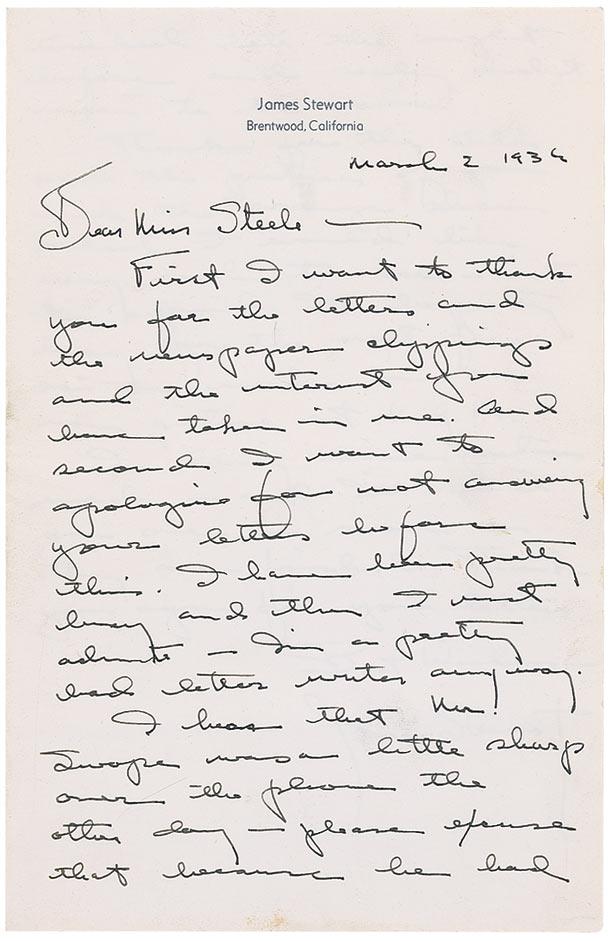 James Stewart
Brentwood, California
March 2 1936
Dear Miss Steele —
First I want to thank
you for the letters and
the newspaper clippings
and the interest you
have taken in me. And
second I want to
apologize for not answering
your letters before
this. I have been pretty
busy and then I must
admit — I'm a pretty
bad letter writer anyway.
I hear that Mr.
Swope was a little sharp
over the phone the
other day — please excuse
that because he had